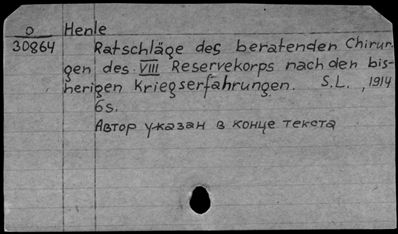 O Henle
30864 Ratschläge des beratenden Chirur-
gen des VIII Reservekorps nach den bis-
herigen Kriegserfahrungen. S.L., 1914
6s.
Автор указан в конце текста